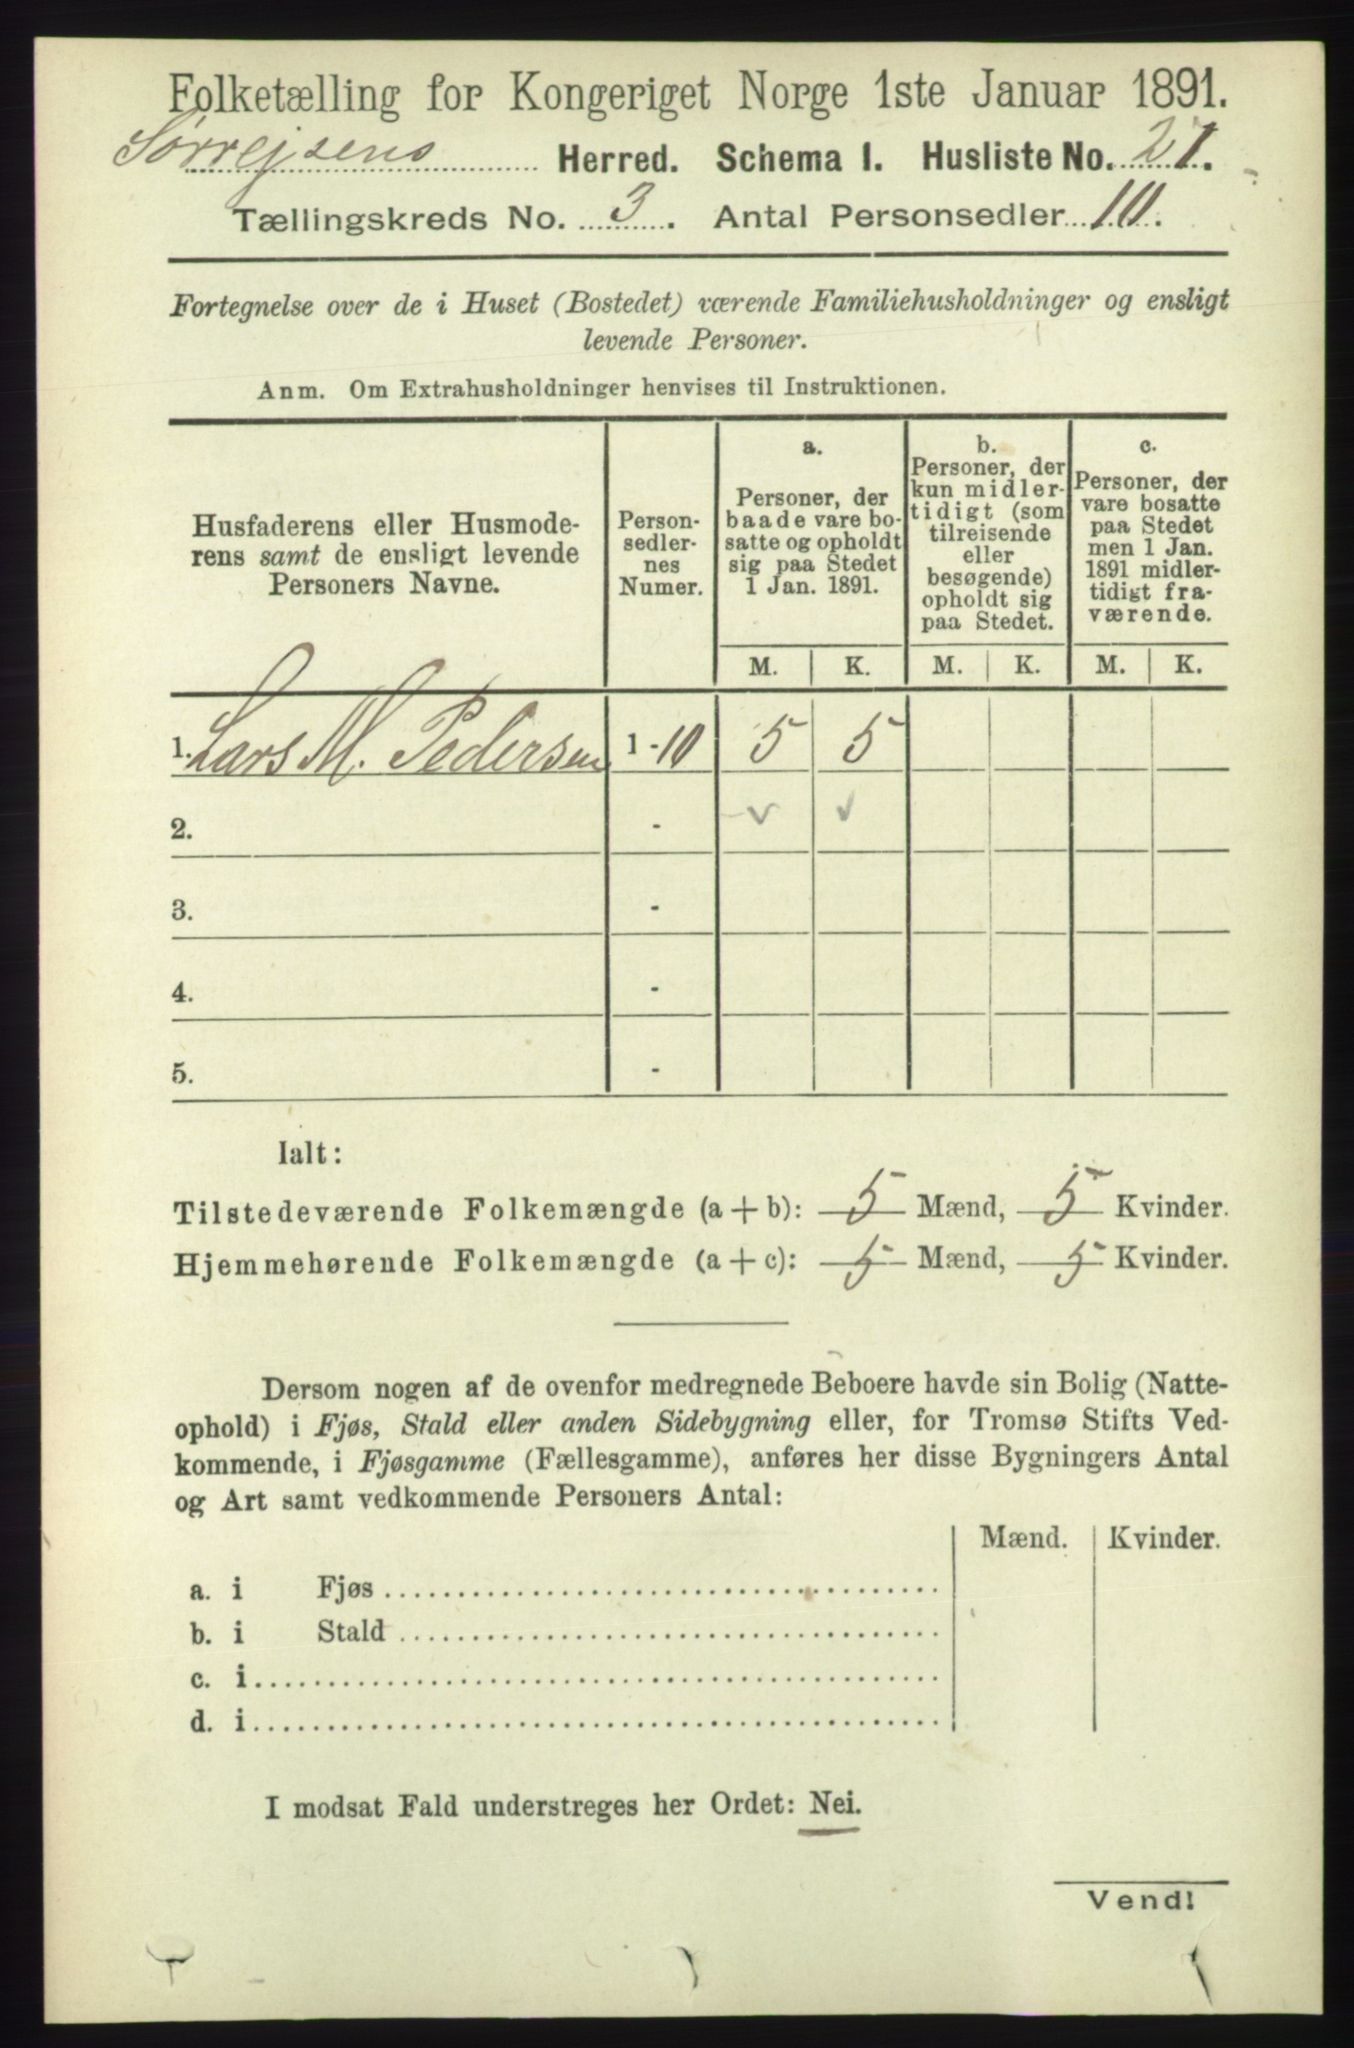 Folketælling for Kongeriget Norge 1ste Januar 1891.
Sørrejsens Herred. Schema I. Husliste No. 21.
Tællingskreds No. 3. Antal Personsedler 10.
Fortegnelse over de i Huset (Bostedet) værende Familiehusholdninger og ensligt
levende Personer.
Anm. Om Extrahusholdninger henvises til Instruktionen.
Husfaderens eller Husmode-
rens samt de ensligt levende
Personers Navne.
Person-
sedler-
nes
Numer.
a.
Personer, der
baade vare bo-
satte og opholdt
sig paa Stedet
1 Jan. 1891.
b.
Personer, der
kun midler-
tidigt (som
tilreisende
eller
besøgende)
opholdt sig
paa Stedet.
c.
Personer, der
vare bosatte
paa Stedet
men 1 Jan.
1891 midler-
tidigt fra-
værende.
M. K. M. K. M. K.
1. Lars M. Pedersen 1-10 5 5
2. -
3. -
4. -
5. -
Ialt:
Tilstedeværende Folkemængde (a+b): 5 Mænd, 5 Kvinder.
Hjemmehørende Folkemængde (a+c): 5 Mænd, 5 Kvinder.
Dersom nogen af de ovenfor medregnede Beboere havde sin Bolig (Natte-
ophold) i Fjøs, Stald eller anden Sidebygning eller, for Tromsø Stifts Ved-
kommende, i Fjøsgamme (Fællesgamme), anføres her disse Bygningers Antal
og Art samt vedkommende Personers Antal:
Mænd. Kvinder.
a. i Fjøs
b. i Stald
c. i
d. i
I modsat Fald understreges her Ordet: Nei.
Vend!